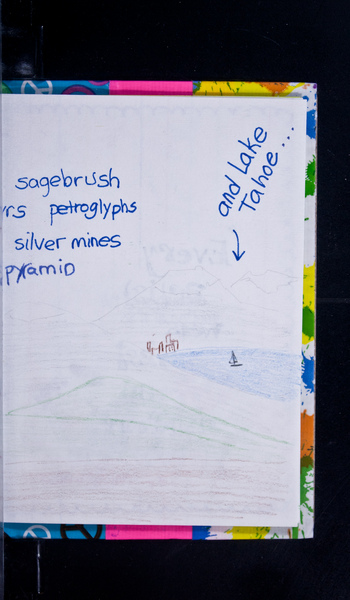 sagebrush
rs petroglyphs
silver mines
pyramid
and Lake
Tahoe....